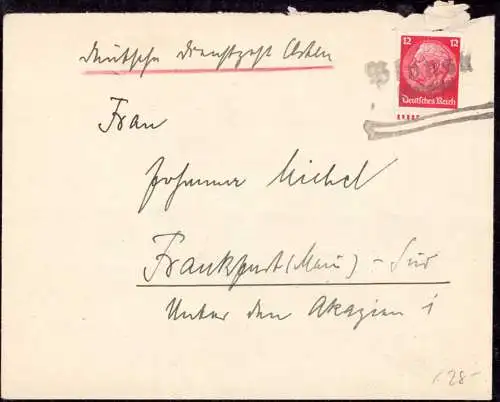 Deutsche Dienstpost Osten
12 12
Deutsches Reich
Frau
Johanna Michel
Frankfurt (Main) - Süd
Unter den Akazien 1
28-